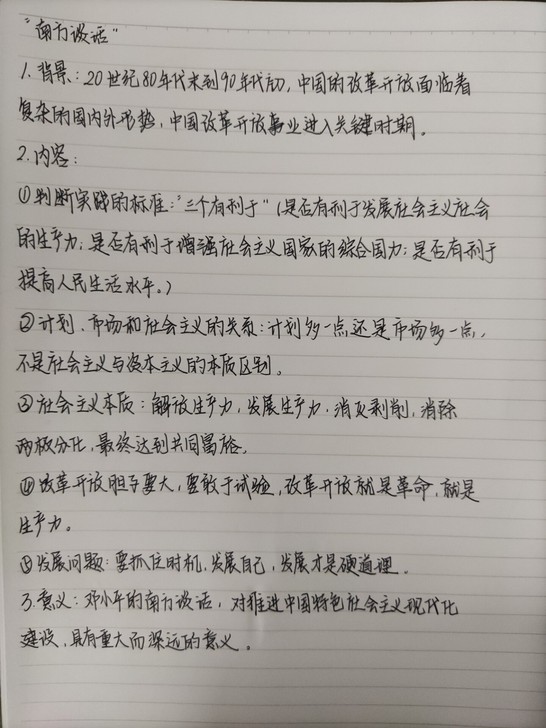 “南方谈话”
1. 背景：20世纪80年代末到90年代初，中国的改革开放面临着
复杂的国内外形势，中国改革开放事业进入关键时期。
2. 内容：
①判断实践的标准：“三个有利于”（是否有利于发展社会主义社会
的生产力；是否有利于增强社会主义国家的综合国力；是否有利于
提高人民生活水平。）
②计划、市场和社会主义的关系：计划多一点还是市场多一点，
不是社会主义与资本主义的本质区别。
③社会主义本质：解放生产力，发展生产力，消灭剥削，消除
两极分化，最终达到共同富裕。
④改革开放胆子要大，要敢于试验，改革开放就是革命，就是
生产力。
⑤发展问题：要抓住时机，发展自己，发展才是硬道理。
3. 意义：邓小平的南方谈话，对推进中国特色社会主义现代化
建设，具有重大而深远的意义。